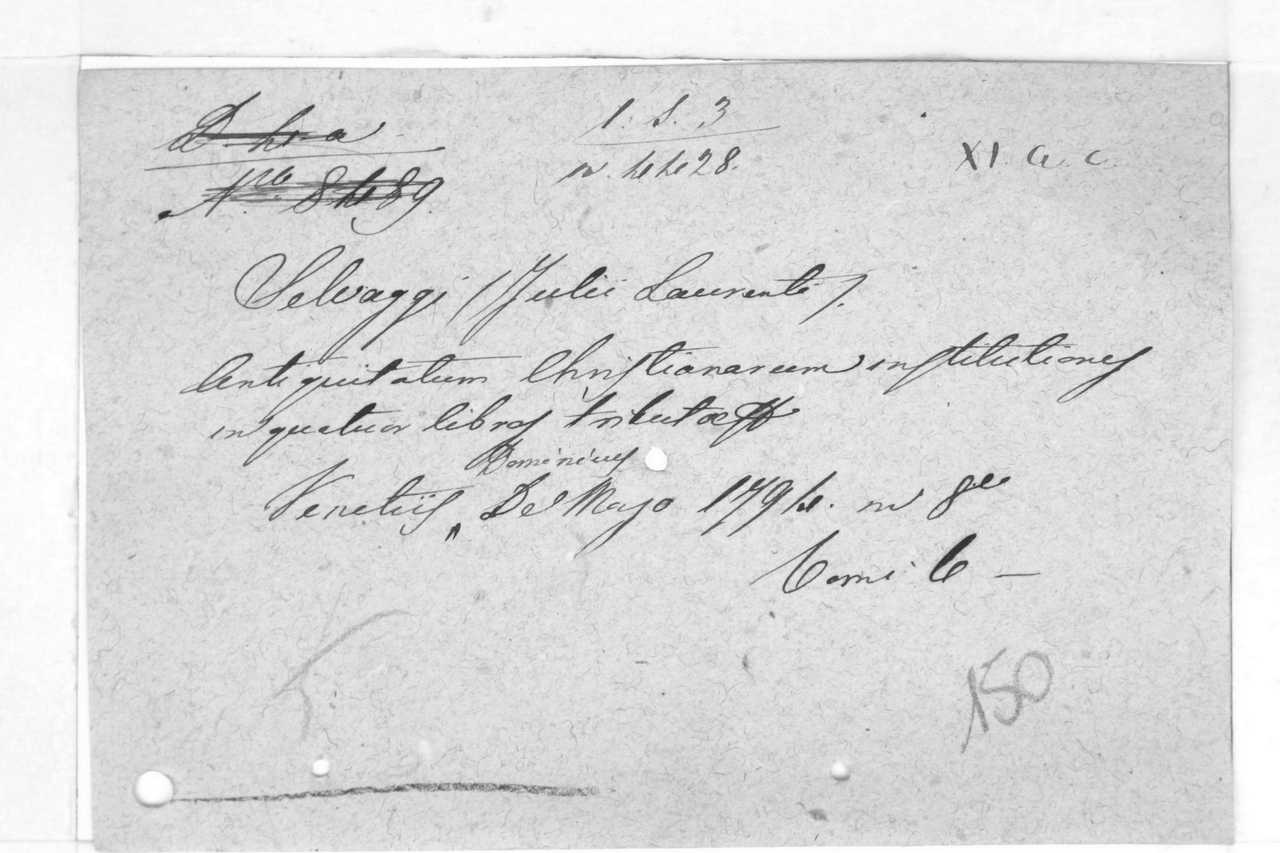 D. 4. a
Nro. 8489.
1. S. 3
n. 4428.
XI a. c.
Selvaggi (Julii Laurenti).
Antiquitatum Christianarum institutiones
in quatuor libros tributae
Dominicus
Venetiis, De Majo 1794. in 8º
Tomi 6 —
150